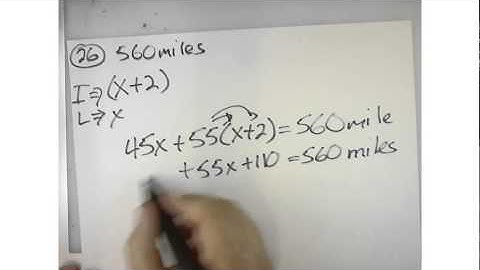 26 560 miles
I⇒(x+2)
L⇒x
45x+55(x+2)=560 mile
+55x+110=560 miles